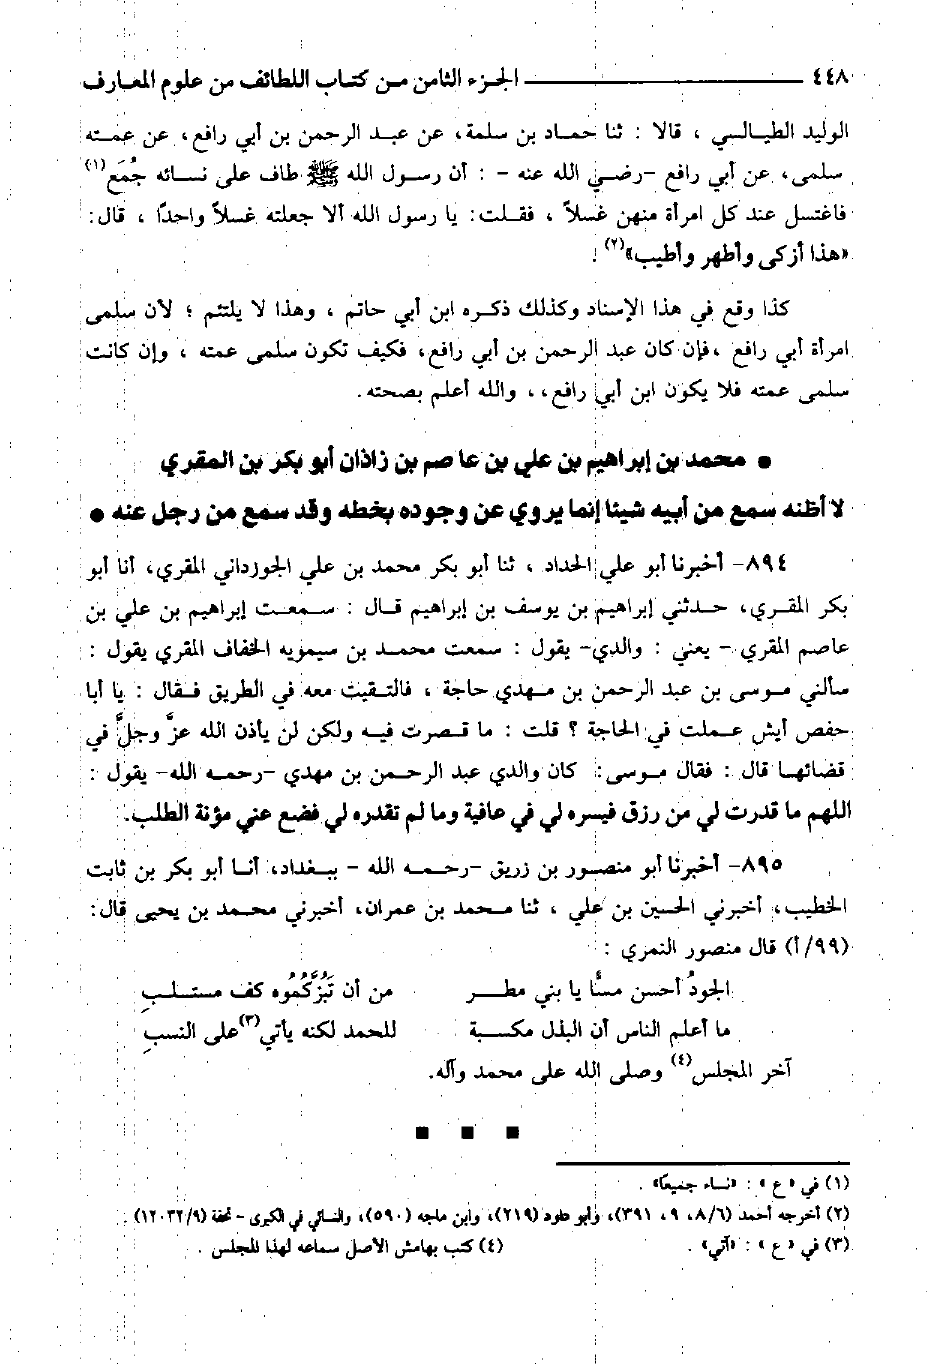 ٤٤٨ الجزء الثامن من كتاب اللطائف من علوم المعارف
الوليد الطيالسي ، قالا : ثنا حماد بن سلمة، عن عبد الرحمن بن أبي رافع، عن عمته
سلمى، عن أبي رافع -رضي الله عنه - : أن رسول الله ﷺ طاف على نسائه جُمَع(١)
فاغتسل عند كل امرأة منهن غسلاً ، فقلت: يا رسول الله ألا جعلته غسلاً واحدًا ، قال:
«هذا أزكى وأطهر وأطيب»(٢) .
كذا وقع في هذا الإسناد وكذلك ذكره ابن أبي حاتم ، وهذا لا يلتئم ؛ لأن سلمى
امرأة أبي رافع ،فإن كان عبد الرحمن بن أبي رافع، فكيف تكون سلمى عمته ، وإن كانت
سلمى عمته فلا يكون ابن أبي رافع، ، والله أعلم بصحته.
● محمد بن إبراهيم بن علي بن عاصم بن زاذان أبو بكر بن المقري
لا أظنه سمع من أبيه شيئا إنما يروي عن وجوده بخطه وقد سمع من رجل عنه ●
٨٩٤- أخبرنا أبو علي الحداد ، ثنا أبو بكر محمد بن علي الجوزداني المقري، أنا أبو
بكر المقري، حدثني إبراهيم بن يوسف بن إبراهيم قال : سمعت إبراهيم بن علي بن
عاصم المقري - يعني : والدي- يقول : سمعت محمد بن سيمويه الخفاف المقري يقول :
سألني موسى بن عبد الرحمن بن مهدي حاجة ، فالتقيت معه في الطريق فقال : يا أبا
حفص أيش عملت في الحاجة ؟ قلت : ما قصرت فيه ولكن لن يأذن الله عزَّ وجلَّ في
قضائها قال : فقال موسى: كان والدي عبد الرحمن بن مهدي -رحمه الله- يقول :
اللهم ما قدرت لي من رزق فيسره لي في عافية وما لم تقدره لي فضع عني مؤنة الطلب.
٨٩٥- أخبرنا أبو منصور بن زريق -رحمه الله - ببغداد، أنا أبو بكر بن ثابت
الخطيب، أخبرني الحسين بن علي ، ثنا محمد بن عمران، أخبرني محمد بن يحيى قال:
(٩٩/أ) قال منصور النمري :
الجودُ أحسن مسًّا يا بني مطر من أن تَبُزَّكُمُوه كف مستلبِ
ما أعلم الناس أن البذل مكسبة للحمد لكنه يأتي(٣)على النسبِ
آخر المجلس(٤) وصلى الله على محمد وآله.
(١) في «ع» : «نساء جميعًا» .
(٢) أخرجه أحمد (٨/٦، ٩، ٣٩١)، وأبو داود (٢١٩)، وابن ماجه (٥٩٠)، والنسائي في الكبرى - تحفة (١٢٠٣٢/٩) .
(٣) في «ع» : «آتي» . (٤) كتب بهامش الأصل سماعه لهذا المجلس .